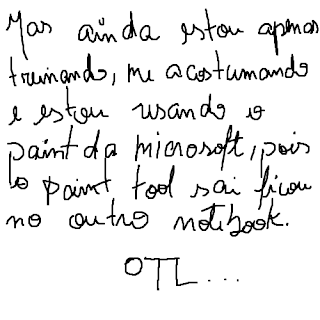 Mas ainda estou apenas
treinando, me acostumando
e estou usando o
paint da microsoft, pois
o paint tool sai ficou
no outro notibook.
OTL...